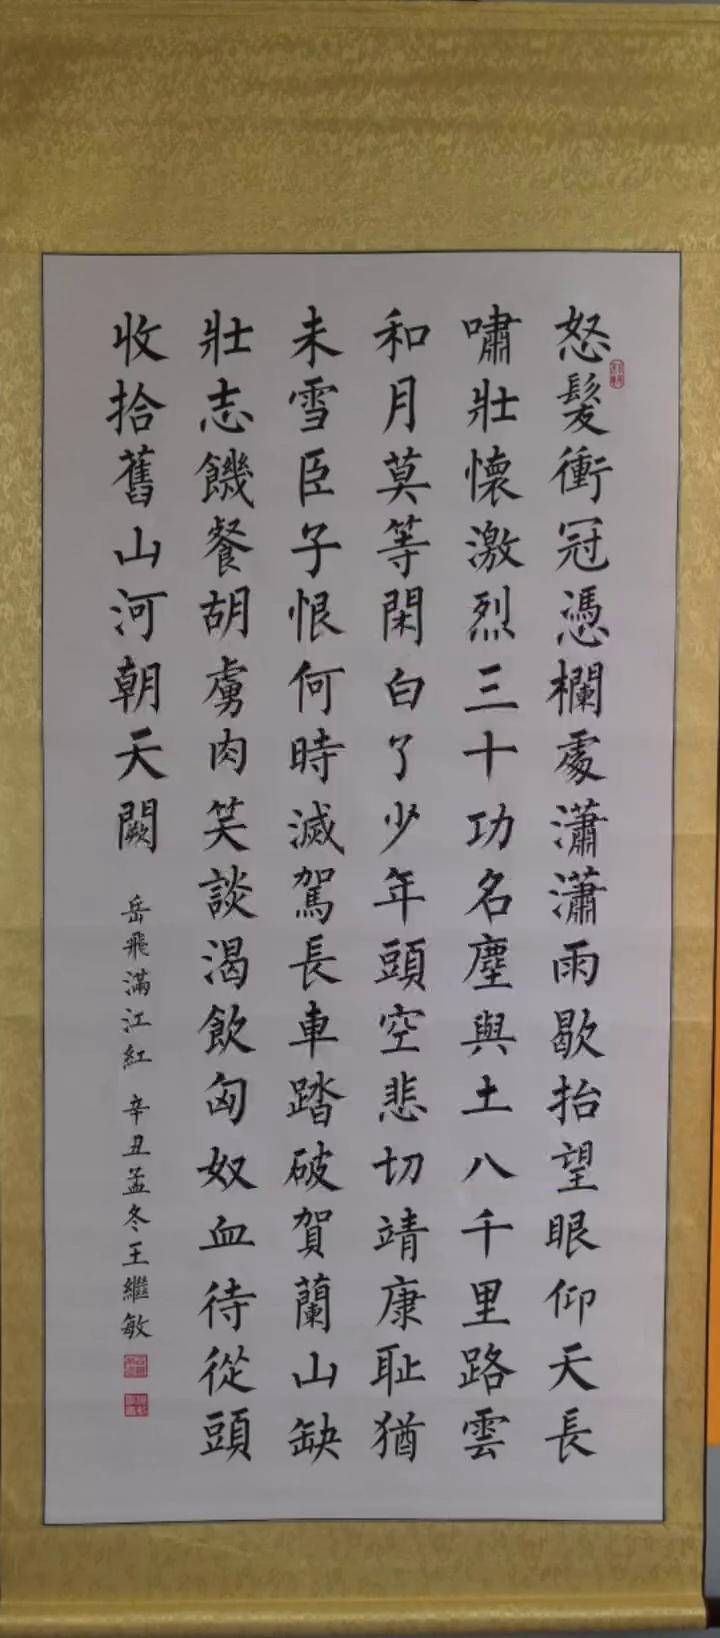 怒髮衝冠憑欄處瀟瀟雨歇抬望眼仰天長
嘯壯懷激烈三十功名塵與土八千里路雲
和月莫等閑白了少年頭空悲切靖康耻猶
未雪臣子恨何時滅駕長車踏破賀蘭山缺
壯志饑餐胡虜肉笑談渴飲匈奴血待從頭
收拾舊山河朝天闕
岳飛滿江紅 辛丑孟冬王繼敏